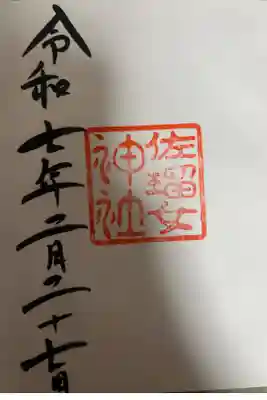 佐瑠女
神社
令和七年二月二十七日